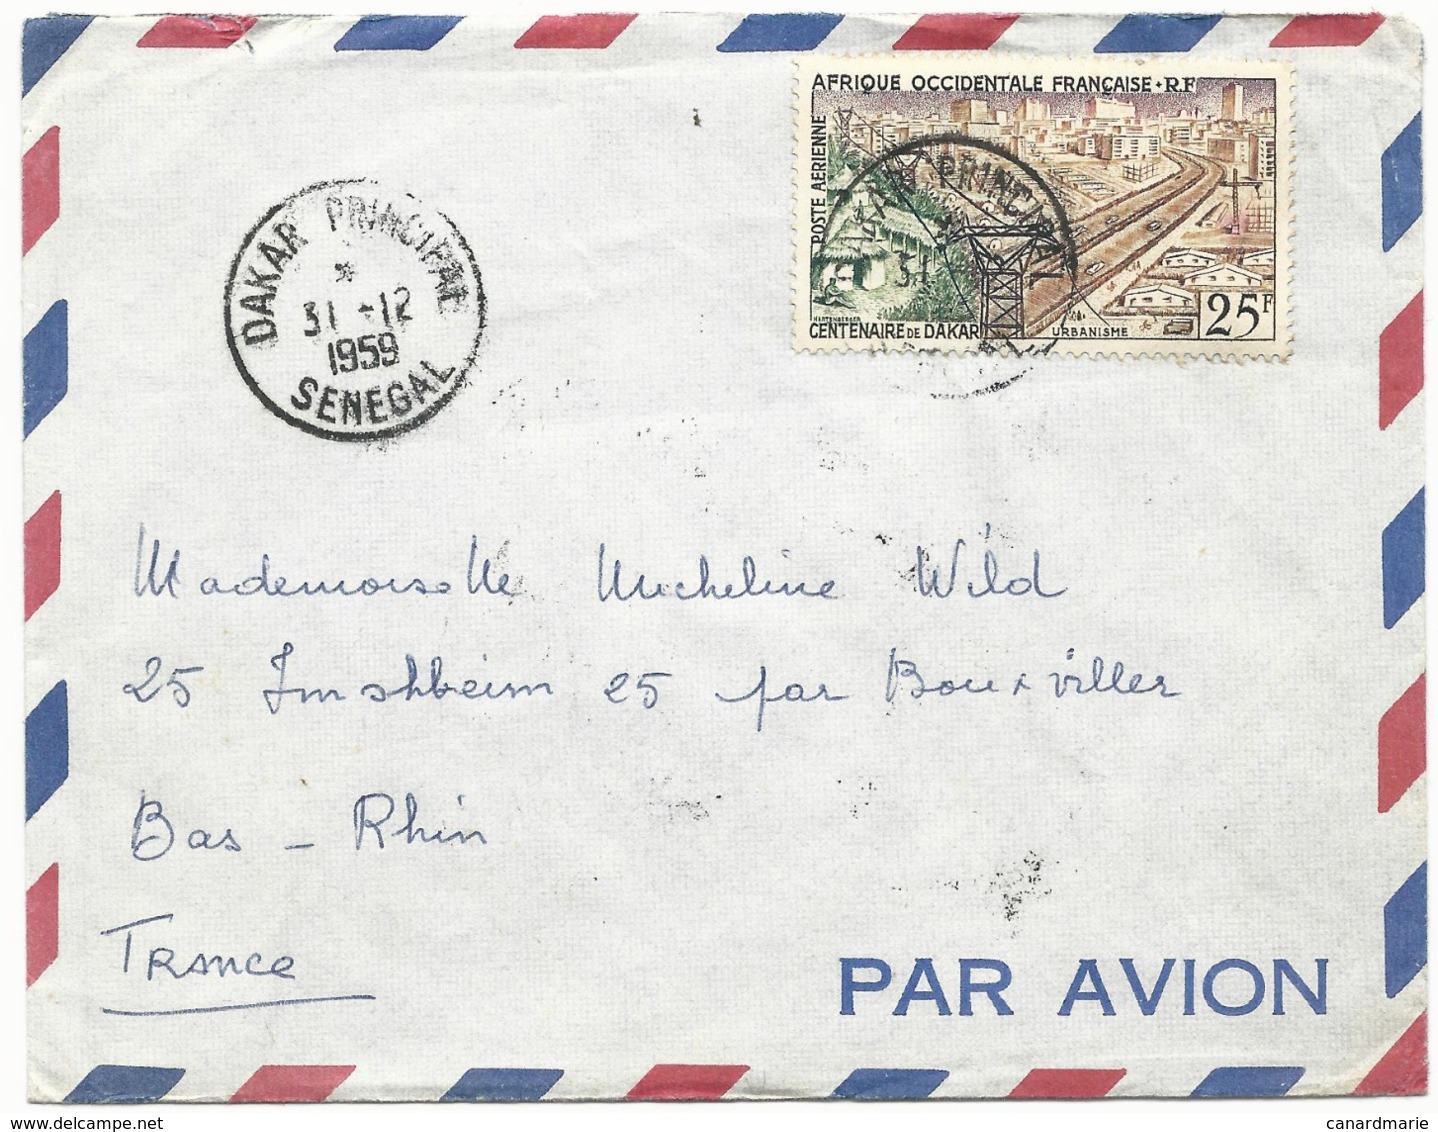 AFRIQUE OCCIDENTALE FRANÇAISE · RF
POSTE AÉRIENNE
25F
HERTENBERGER
CENTENAIRE DE DAKAR
URBANISME
DAKAR PRINCIPAL
31
DAKAR PRINCIPAL
*
31 -12
1959
SENEGAL
Mademoiselle Micheline Wild
25 Imshheim 25 par Bouxviller
Bas - Rhin
France
PAR AVION
canardmarie